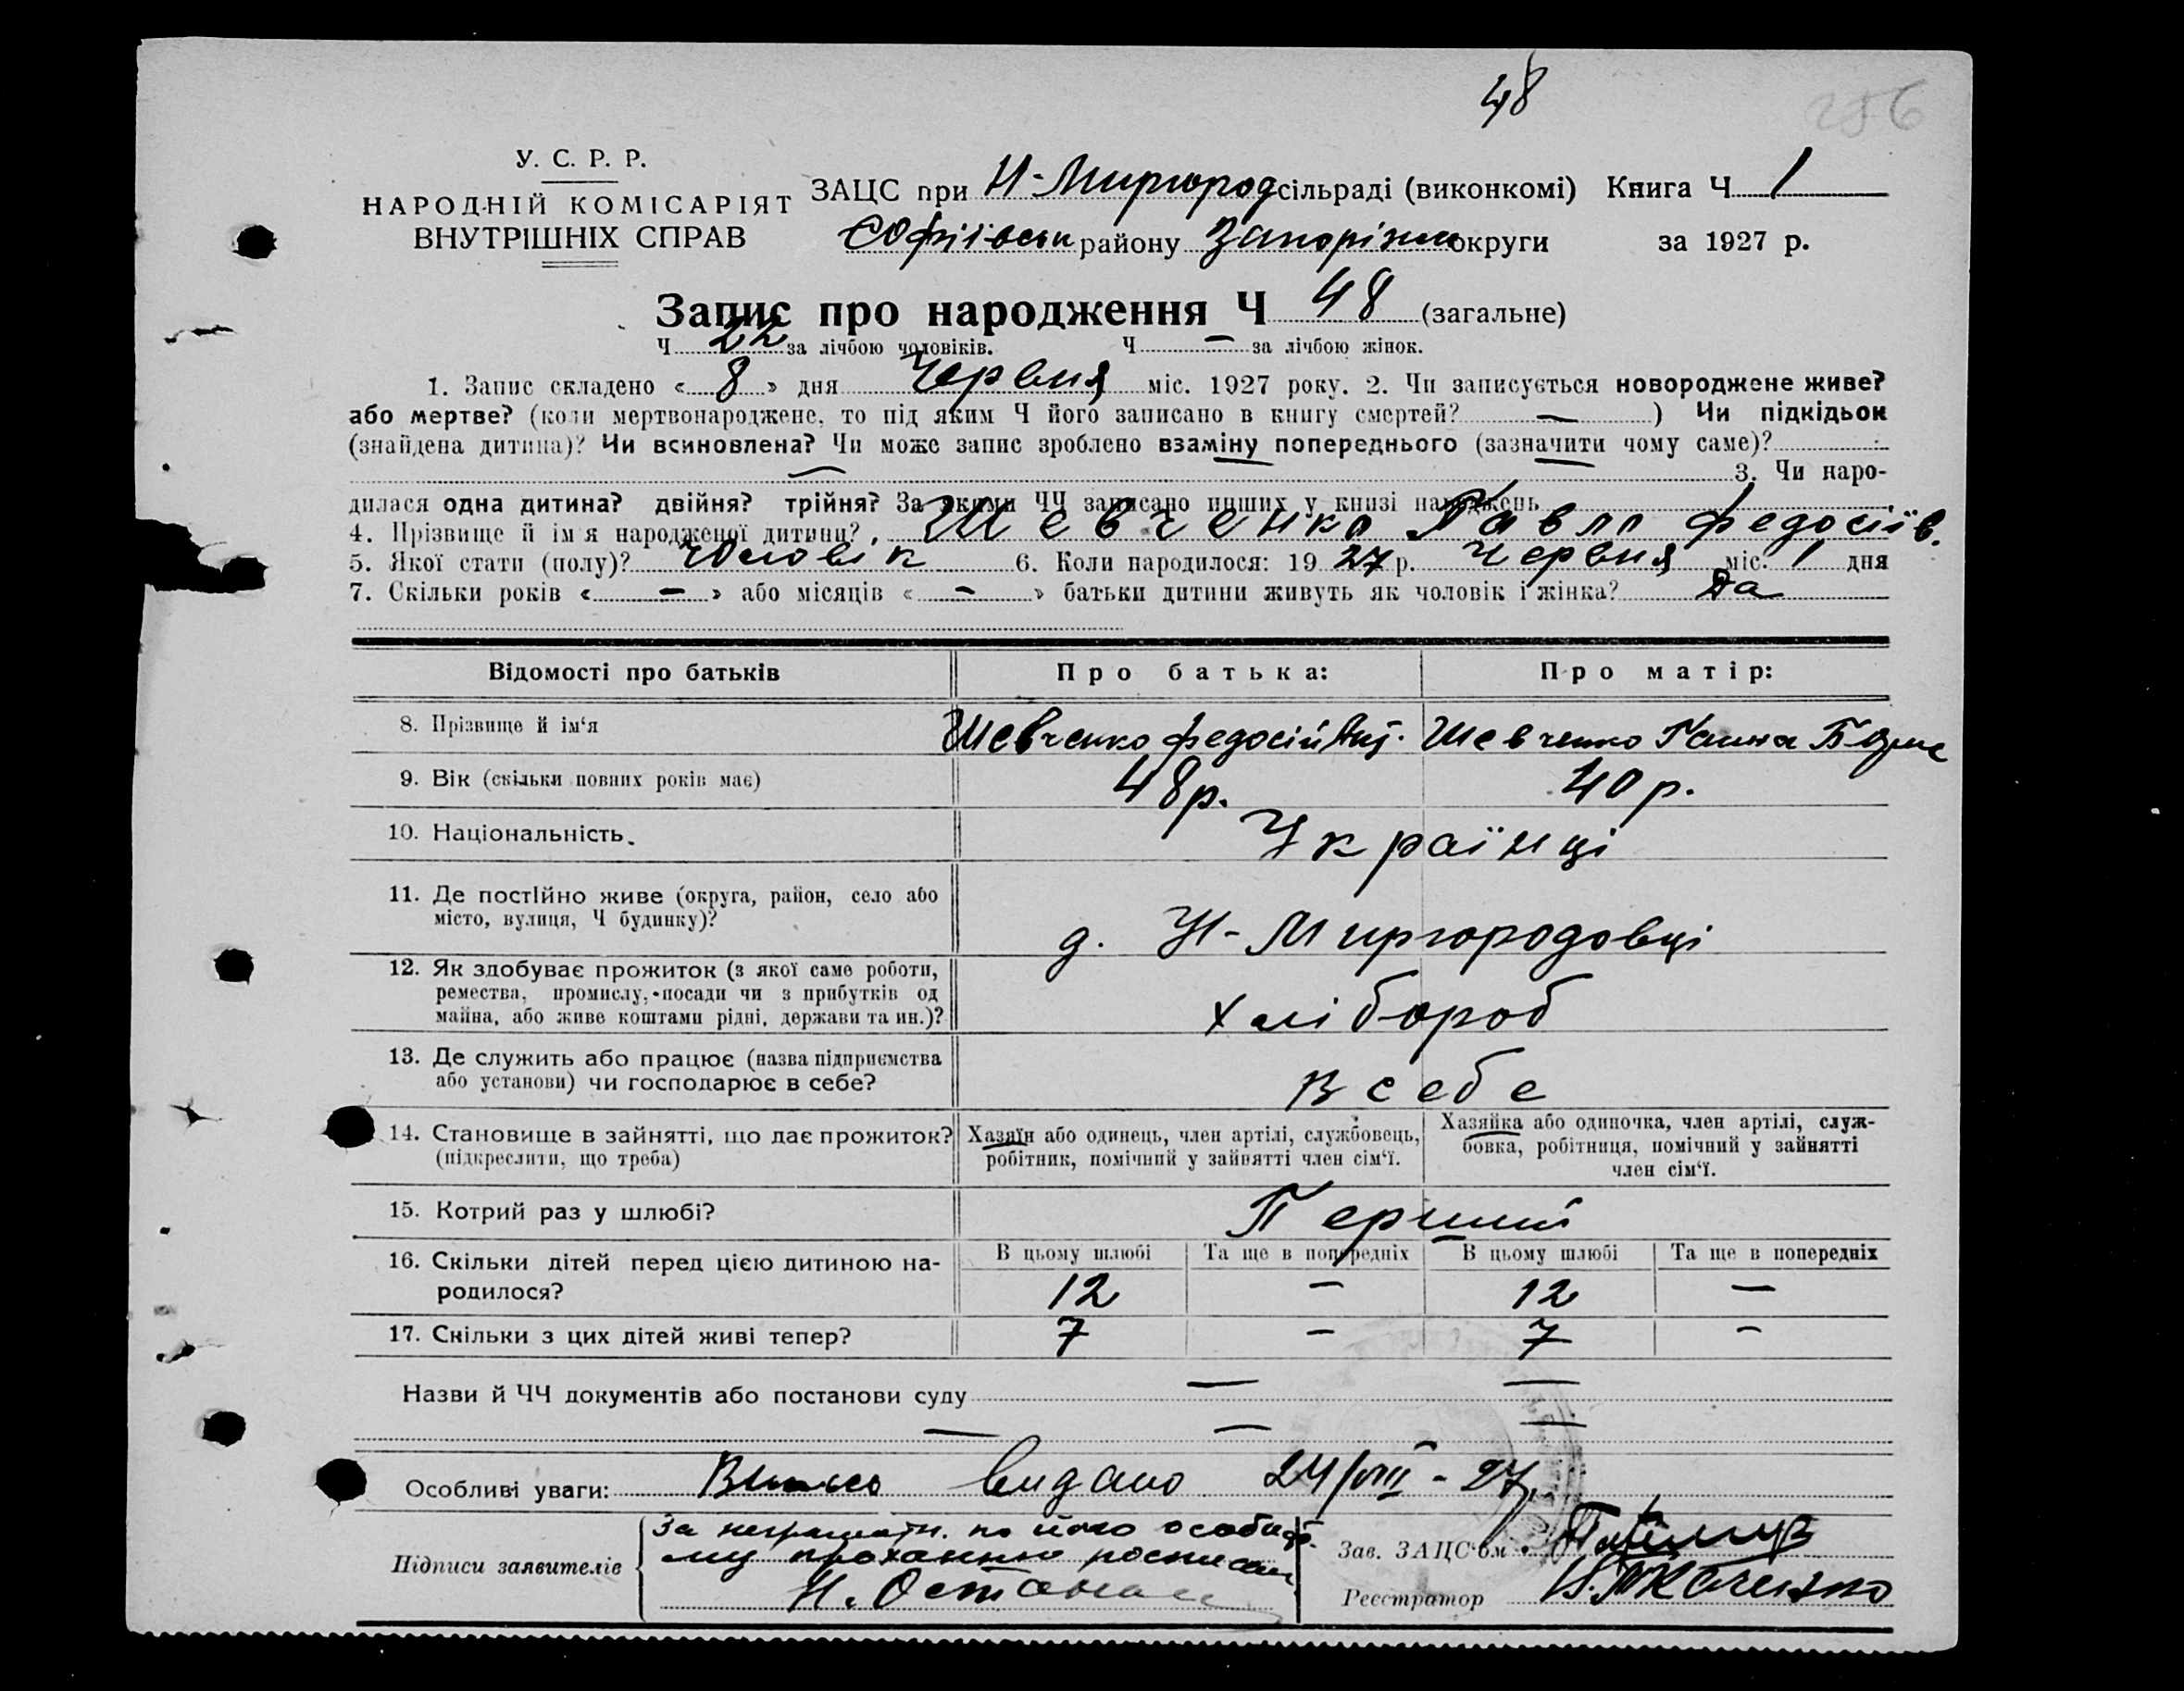 48
286
У. С. Р. Р.
НАРОДНІЙ КОМІСАРІЯТ
ВНУТРІШНІХ СПРАВ
ЗАЦС при Н-Миргород сільраді (виконкомі) Книга Ч 1
Софіївськ району Запоріжж округи за 1927 р.
Запис про народження Ч 48 (загальне)
Ч 22 за лічбою чоловіків. Ч — за лічбою жінок.
1. Запис складено « 8 » дня Червня міс. 1927 року. 2. Чи записується новороджене живе?
або мертве? (коли мертвонароджене, то під яким Ч його записано в книгу смертей? — ) Чи підкідьок
(знайдена дитина)? Чи всиновлена? Чи може запис зроблено взаміну попереднього (зазначити чому саме)?
— 3. Чи наро-
дилася одна дитина? двійня? трійня? За якими ЧЧ записано инших у книзі народжень
4. Прізвище й ім я народженої дитини? Шевченко Павло Федосіїв.
5. Якої стати (полу)? Чоловік 6. Коли народилося: 19 27 р. Червня міс. 1 дня
7. Скільки років « — » або місяців « — » батьки дитини живуть як чоловік і жінка? Да
Відомості про батьків Про батька: Про матір:
8. Прізвище й ім‘я Шевченко Федосій Шевченко Ганна
9. Вік (скільки повних років має) 48 р. 40 р.
10. Національність. Українці
11. Де постійно живе (округа, район, село або
місто, вулиця, Ч будинку)? д. Н-Миргородовці
12. Як здобуває прожиток (з якої саме роботи,
ремества, промислу, посади чи з прибутків од
майна, або живе коштами рідні, держави та ин.)? Хлібороб
13. Де служить або працює (назва підприємства
або установи) чи господарює в себе? В себе
14. Становище в зайнятті, що дає прожиток?
(підкреслити, що треба)
Хазяїн або одинець, член артілі, службовець,
робітник, помічний у зайнятті член сім‘ї.
Хазяйка або одиночка, член артілі, служ-
бовка, робітниця, помічний у зайнятті
член сім‘ї.
15. Котрий раз у шлюбі? Перший
В цьому шлюбі Та ще в попередніх В цьому шлюбі Та ще в попередніх
16. Скільки дітей перед цією дитиною на-
родилося? 12 — 12 —
17. Скільки з цих дітей живі тепер? 7 — 7 —
Назви й ЧЧ документів або постанови суду — —
— — —
Особливі уваги: видано 24/VIII - 27р.
Підписи заявителів
За неграмотн. по його особисто
му проханню росписався
Зав. ЗАЦС‘ом
Реєстратор Ткаченко